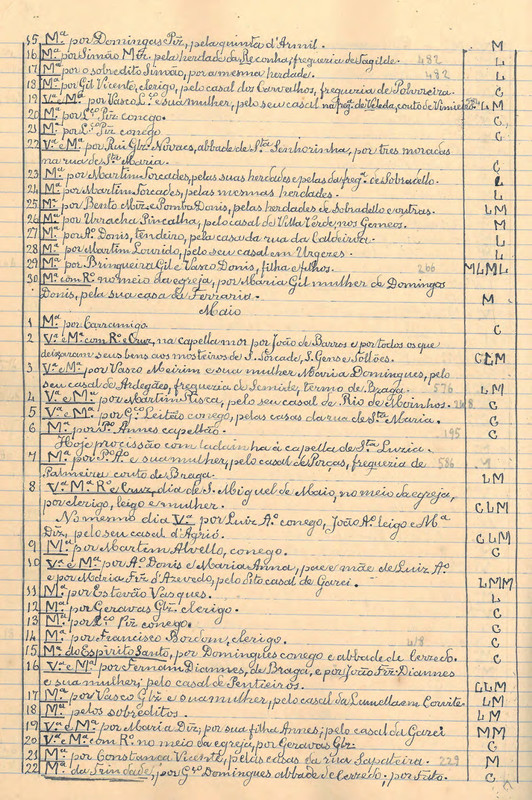 15 Mª por Domingas Piz, pela quinta d'Armil. M
16 Mª por Simão Miz. pela herdade da Reconha, freguezia de Fagilde. 482 L
17 Mª por o sobredito Simão, por a mesma herdade. 482 L
18 Mª por Gil Vicente, clerigo, pelo casal dos Carvalhos, freguezia de Polvoreira. C
19 Vª e Mª por Vasco Lço e sua mulher, pelo seu casal na freg. de Veleda, couto de Vimieiro. LM
20 Mª por Lço Piz conego. C
21 Mª por Lço Piz conego C
22 Vª e Mª por Rui Glz. Novaes, abbade de Stª Senhorinha, por tres moradas
na rua de Stª Maria. C
23 Mª por Martim Torcades, pelas suas herdades e pelas da freg. de Sobradello. L
24 Mª por Martim Torcades, pelas mesmas herdades. L
25 Mª por Bento Miz e Pomba Donis, pelas herdades de Sobradello e outras. LM
26 Mª por Urracha Pincalha, pelo casal de Villa Verde, nos Gemeos. M
27 Mª por Aº Donis, tendeiro, pela casa da rua da Caldeirôa. L
28 Mª por Martim Lourido, pelo seu casal em Urgezes. L
29 Mª por Bringueira Gil e Vasco Donis, filha e filhos. 266 MLML
30 Mª com Rº no meio da egreja, por Maria Gil mulher de Domingos
Donis, pela sua casa da Ferraria. M
Maio
1 Mª por Carramigo C
2 Vª e Mª com Rº e Cruz, na capella mor por João de Barros e por todos os que
deixaram seus bens aos mosteiros de S. Torcade, S. Gens e Tollões. CLM
3 Vª e Mª por Vasco Meirim e sua mulher Maria Domingues, pelo
seu casal de Ardegães, freguezia de Semide, termo de Braga. 576 LM
4 Vª e Mª por Martim Tisca, pelo seu casal de Rio de Moinhos. L
5 Vª e Mª por Gço Leitão conego, pelas casas da rua de Stª Maria. C
6 Mª por Pº Annes capellão. 195 C
Hoje procissão com ladainha á capella de Stª Luzia.
7 Mª por Pº Aº e sua mulher, pelo casal de Porças, freguezia de 586
Palmeira couto de Braga. LM
8 Vª Mª Rº e Cruz, dia de S. Miguel de Maio, no meio da egreja,
por clerigo, leigo e mulher. CLM
No mesmo dia Vª por Luiz Aº conego, João Aº leigo e Mª
Diz, pelo seu casal d'Agrió. CLM
9 Mª por Martim Alvello, conego. C
10 Vª e Mª por Aº Donis e Maria Anna, pae e mãe de Luiz Aº
e por Maria Frz d'Azevedo, pelo dito casal de Garci. LMM
11 Mª por Estevão Vasques. L
12 Mª por Geravas Glz clerigo. C
13 Mª por Lço Piz conego. C
14 Mª por Francisco Bordom, clerigo. 418 C
15 Mª do Espirito Santo, por Domingues conego e abbade de Cerzedo. C
16 Vª e Mª por Fernam Diannes, de Braga, e por João Frz. Diannes
e sua mulher; pelo casal de Pentieiros. LLM
17 Mª por Vasco Glz e sua mulher, pelo casal da Lumella em Corvite. LM
18 Mª pelos sobreditos. LM
19 Vª e Mª por Maria Diz, por sua filha Annes; pelo casal da Garci MM
20 Vª e Mª com Rº no meio da egreja, por Geravas Glz C
21 Mª por Constança Vicente, pelas casas da rua Sapateira. 229 M
22 Mª da Trindade, por Gço Domingues abbade de Cerzedo; por Frto. C